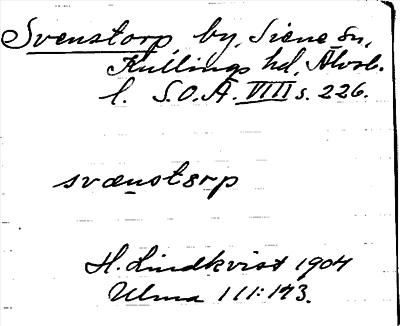 Svenstorp by, Siene sn,
Kullings hd, Älvsb.
l. S.O.Ä. VIII s. 226.
svænstorp
H. Lindkvist 1904
Ulma 111:143.